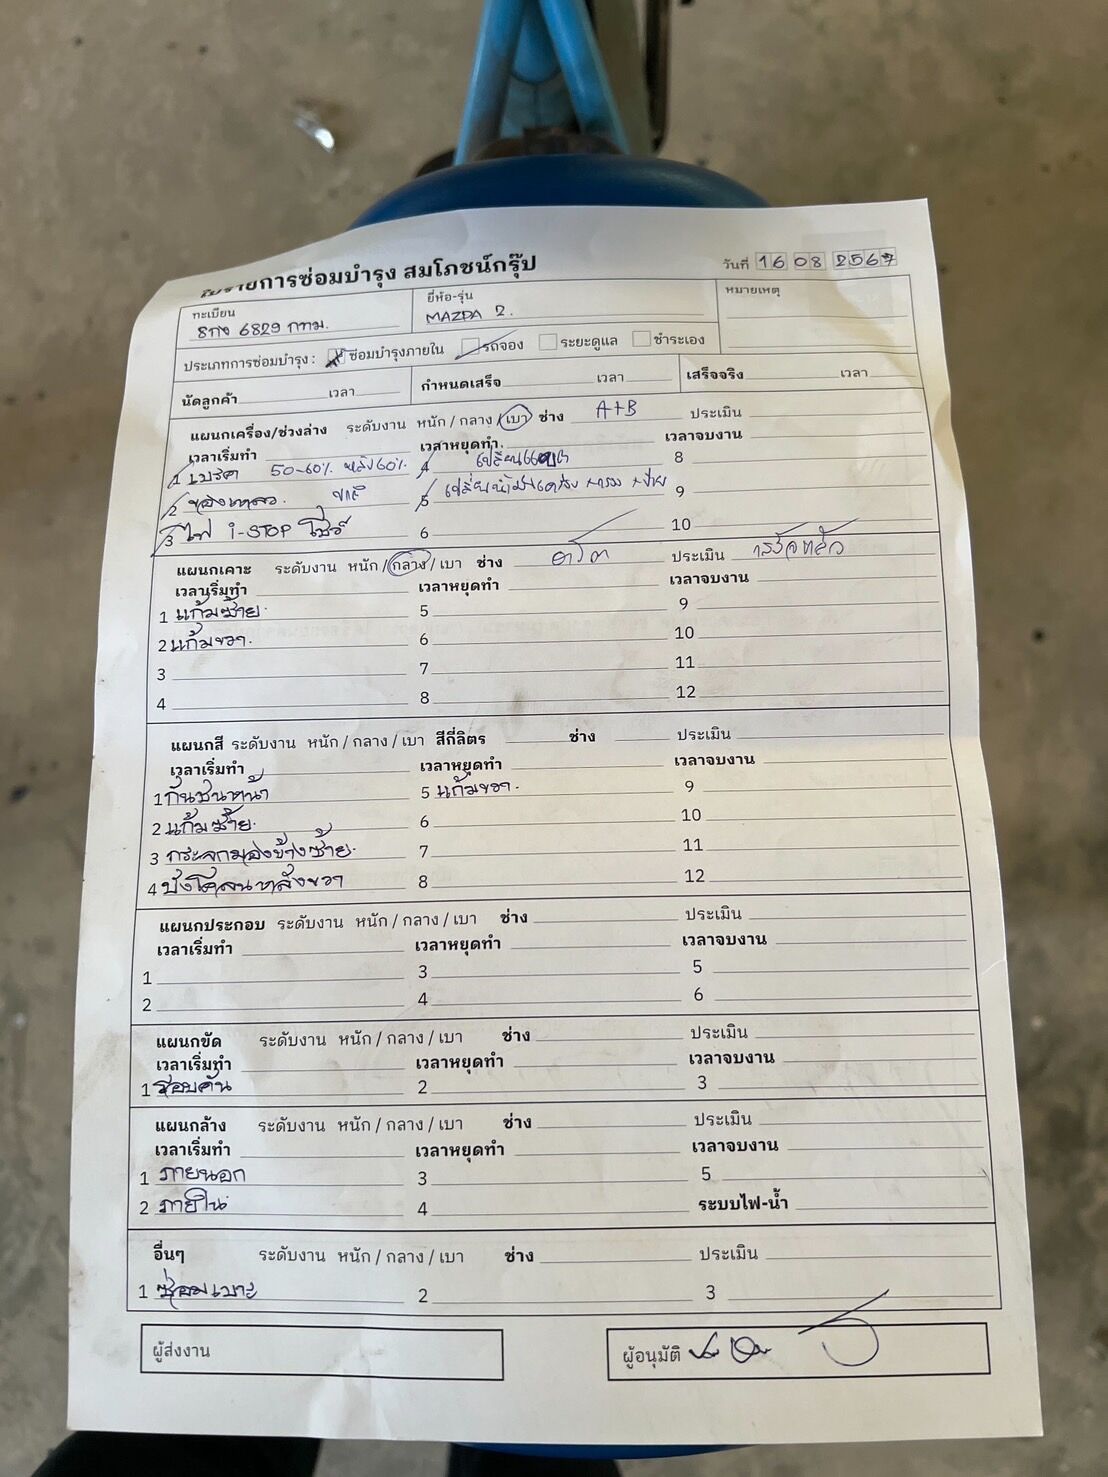 ใบรายการซ่อมบำรุง สมโภชน์กรุ๊ป
วันที่ 16 08 2567
ทะเบียน ยี่ห้อ-รุ่น หมายเหตุ
8กง 6829 กทม. MAZDA 2.
ประเภทการซ่อมบำรุง : ซ่อมบำรุงภายใน รถจอง ระยะดูแล ชำระเอง
นัดลูกค้า เวลา กำหนดเสร็จ เวลา เสร็จจริง เวลา
แผนกเครื่อง/ช่วงล่าง ระดับงาน หนัก / กลาง / เบา ช่าง A+B ประเมิน
เวลาเริ่มทำ เวลาหยุดทำ เวลาจบงาน
1 เบรค 50-60% หลัง 60% 4 เปลี่ยนแบต 8
2 ของเหลว. ปกติ 5 เปลี่ยนน้ำมันเครื่อง 9
3 ไฟ i-STOP โชว์ 6 10
แผนกเคาะ ระดับงาน หนัก / กลาง / เบา ช่าง ประเมิน เสร็จแล้ว
เวลาเริ่มทำ เวลาหยุดทำ เวลาจบงาน
1 แก้มซ้าย. 5 9
2 แก้มขวา. 6 10
3 7 11
4 8 12
แผนกสี ระดับงาน หนัก / กลาง / เบา สีกี่ลิตร ช่าง ประเมิน
เวลาเริ่มทำ เวลาหยุดทำ เวลาจบงาน
1 กันชนหน้า 5 แก้มขวา. 9
2 แก้มซ้าย. 6 10
3 กระจกมองข้างซ้าย. 7 11
4 บังโคลนหลังขวา 8 12
แผนกประกอบ ระดับงาน หนัก / กลาง / เบา ช่าง ประเมิน
เวลาเริ่มทำ เวลาหยุดทำ เวลาจบงาน
1 3 5
2 4 6
แผนกขัด ระดับงาน หนัก / กลาง / เบา ช่าง ประเมิน
เวลาเริ่มทำ เวลาหยุดทำ เวลาจบงาน
1 รอบคัน 2 3
แผนกล้าง ระดับงาน หนัก / กลาง / เบา ช่าง ประเมิน
เวลาเริ่มทำ เวลาหยุดทำ เวลาจบงาน
1 ภายนอก 3 5
2 ภายใน 4 ระบบไฟ-น้ำ
อื่นๆ ระดับงาน หนัก / กลาง / เบา ช่าง ประเมิน
1 ซ่อมเบาะ 2 3
ผู้ส่งงาน ผู้อนุมัติ